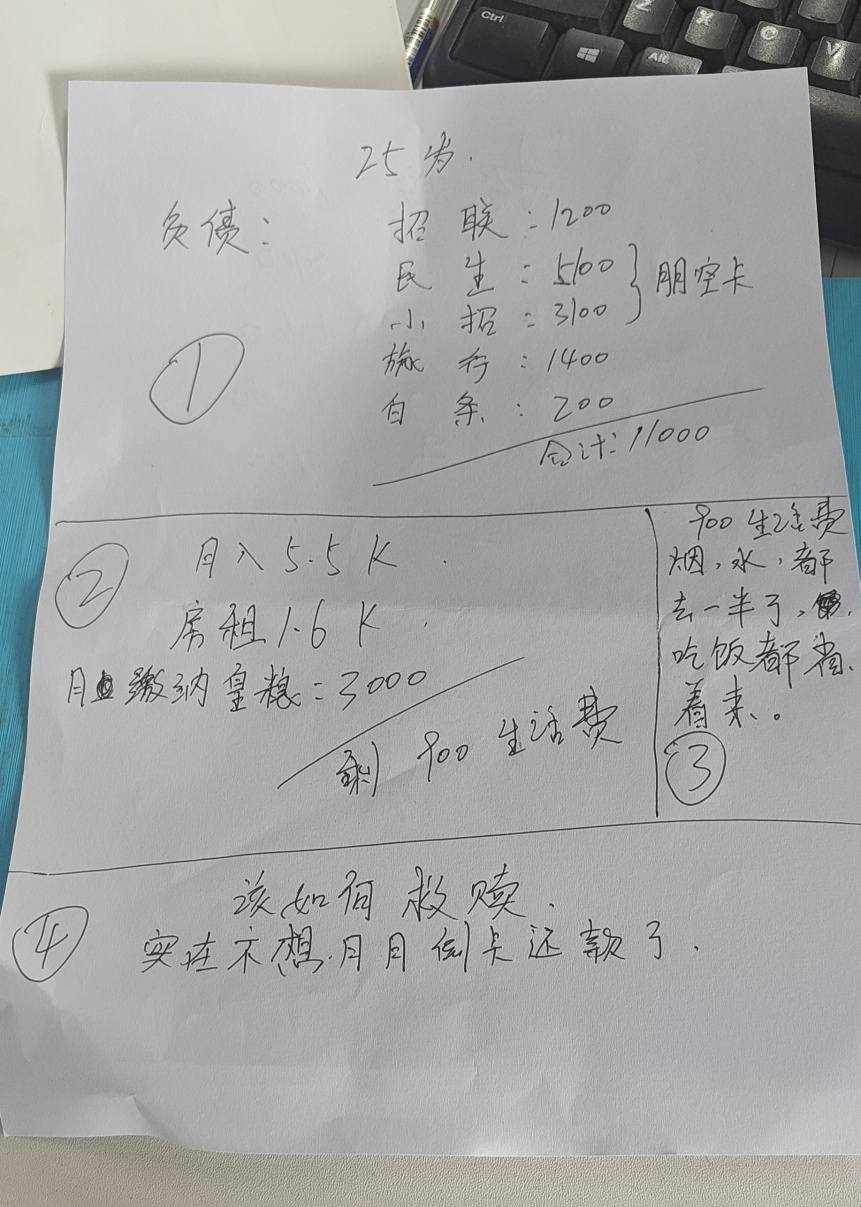 Ctrl
Alt
Z
X
C
V
25岁.
负债：
招联：1200
民生：5100
小招：3100
} 刷空卡
旅行：1400
白条：200
合计：11000
①
②
月入5.5K.
房租1.6K.
月缴纳皇粮：3000
剩900生活费
900生活费
烟，水，都
去一半了，
吃饭都省.
着来。
③
④
该如何救赎.
实在不想.月月倒卡还款了.